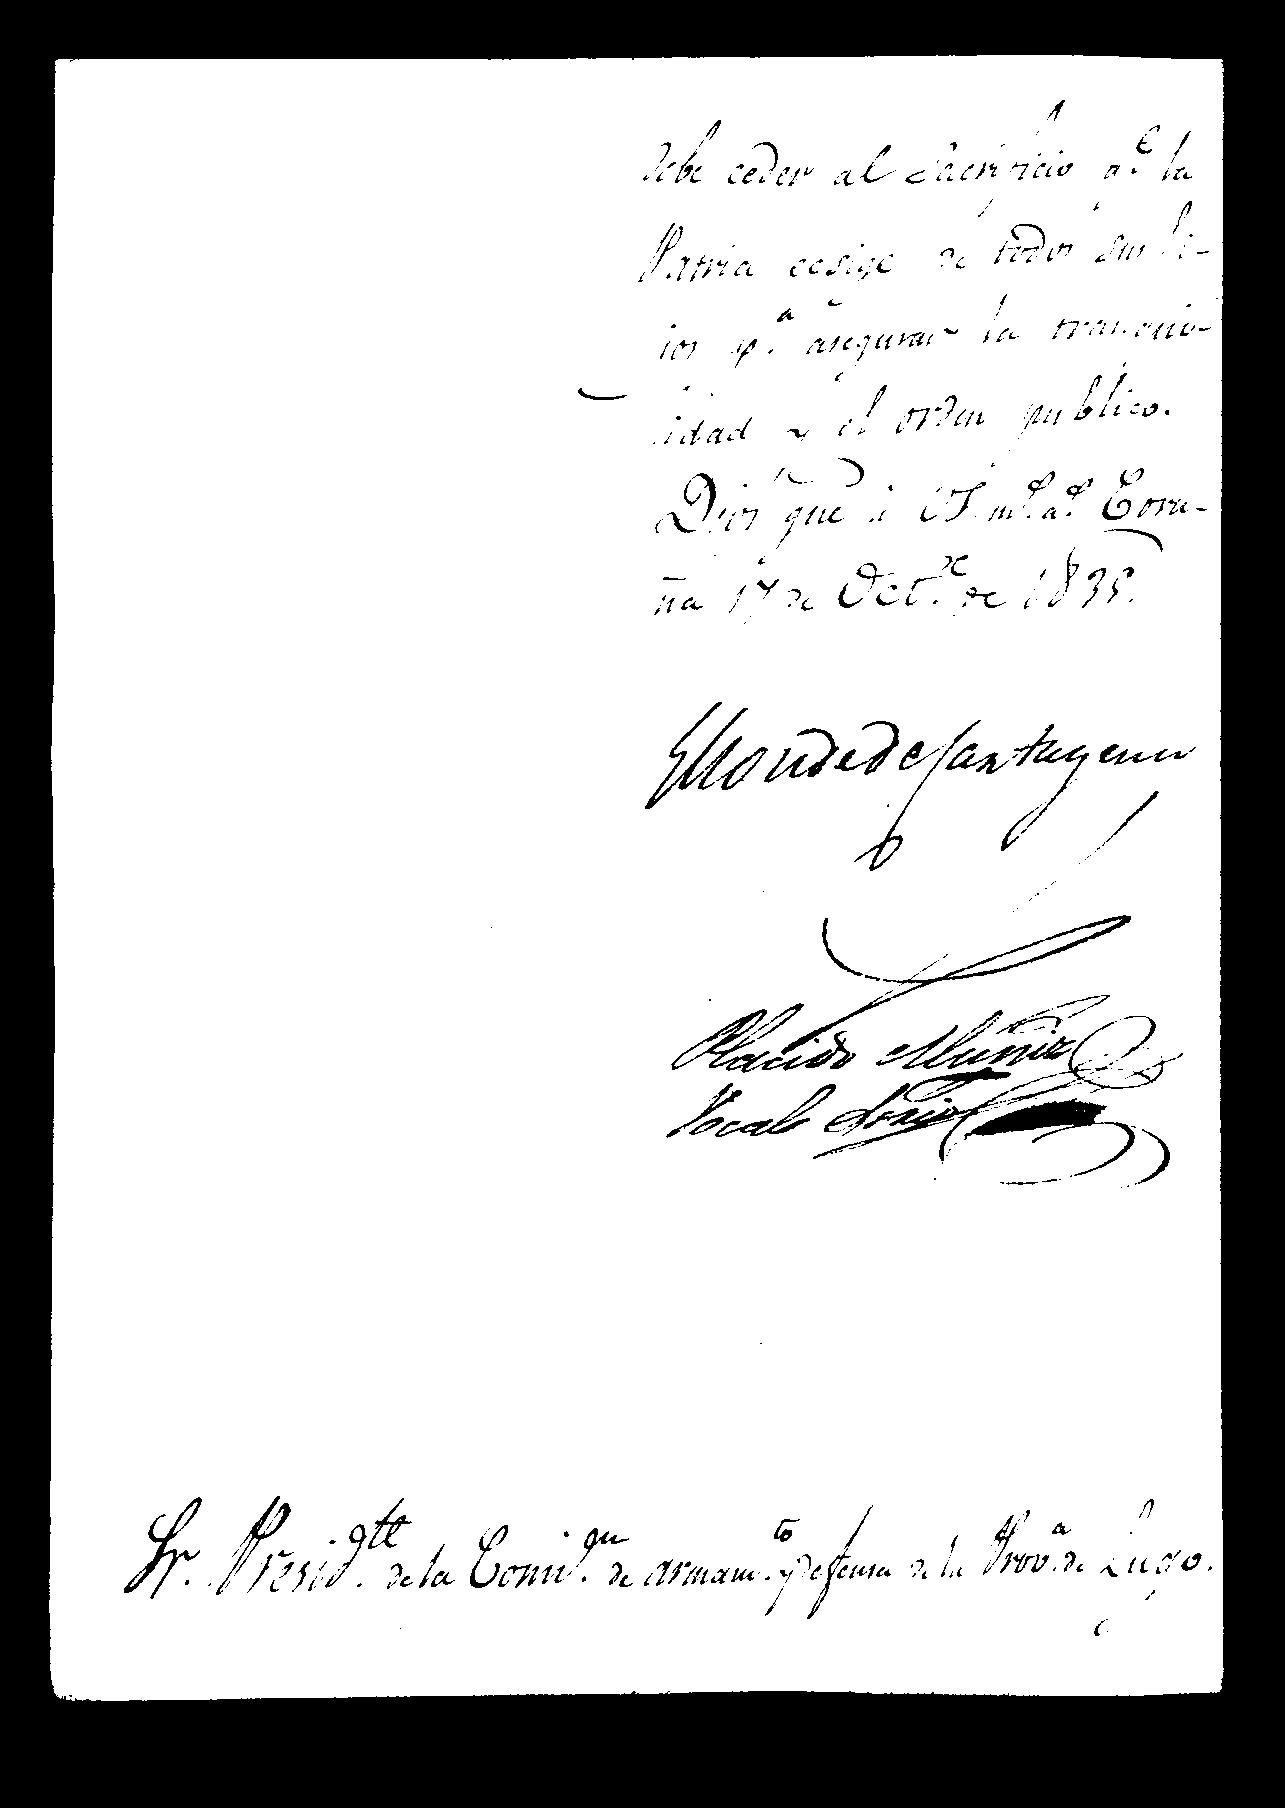 debe ceder al Sacrificio q.e la
Patria ecsige de todos sus hi-
jos p.a asegurar la tranqui-
lidad y el orden publico.
Dios gue à VS. m.s a.s Coru-
ña 17 de Oct.e de 1835.
El Conde de Cartagena
Placido Muñiz
Vocal Srio
Sr. Presid.tte de la Comi.on de armam.to y defensa de la Prov.a de Lugo.